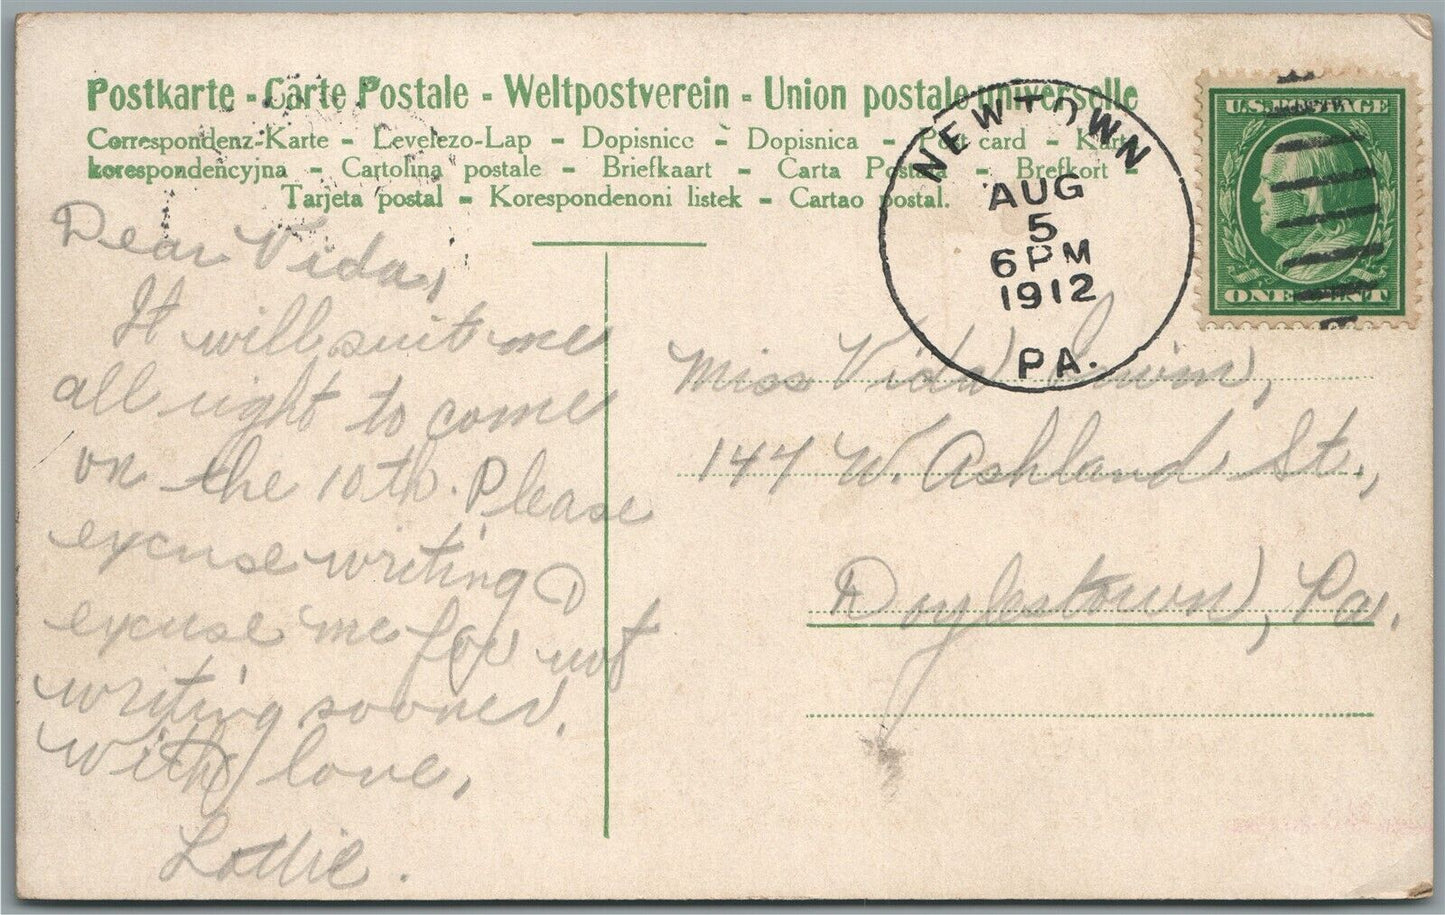 Postkarte - Carte Postale - Weltpostverein - Union postale universelle
Correspondenz-Karte - Levelezo-Lap - Dopisnicc - Dopisnica - Post card - Karta
korespondencyjna - Cartolina postale - Briefkaart - Carta Postala - Brefkort -
Tarjeta postal - Korespondenoni listek - Cartao postal.
NEWTOWN
AUG
5
6 PM
1912
PA.
U.S. POSTAGE
ONE CENT
Dear Vida,
It will suit me
all right to come
on the 10th. Please
excuse writing &
excuse me for not
writing sooner.
With love,
Lottie.
Miss Vida
144 W. Ashland St.,
Doylestown, Pa.